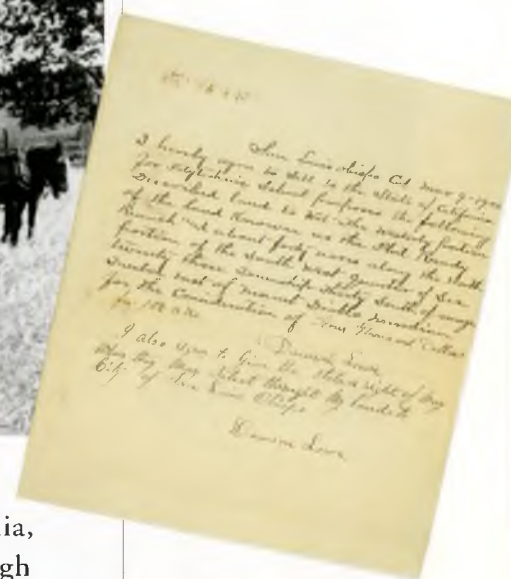 San Luis Obispo Cal Nov 9-19
I hereby agree to Sell to the State of California
for Polytechnic School purposes the following
Described land to Wit - the portion
of the land Known as the
Ranch about forty acres along the North
portion of the South West Quarter of Sec
twenty three Township thirty South of range
twelve East of Mount Diablo Meridian
for the Consideration of Four Thousand Dollars
Lowe
I also agree to Give the State right of Way
through My land
City of San Luis Obispo
Lowe
ia,
gh